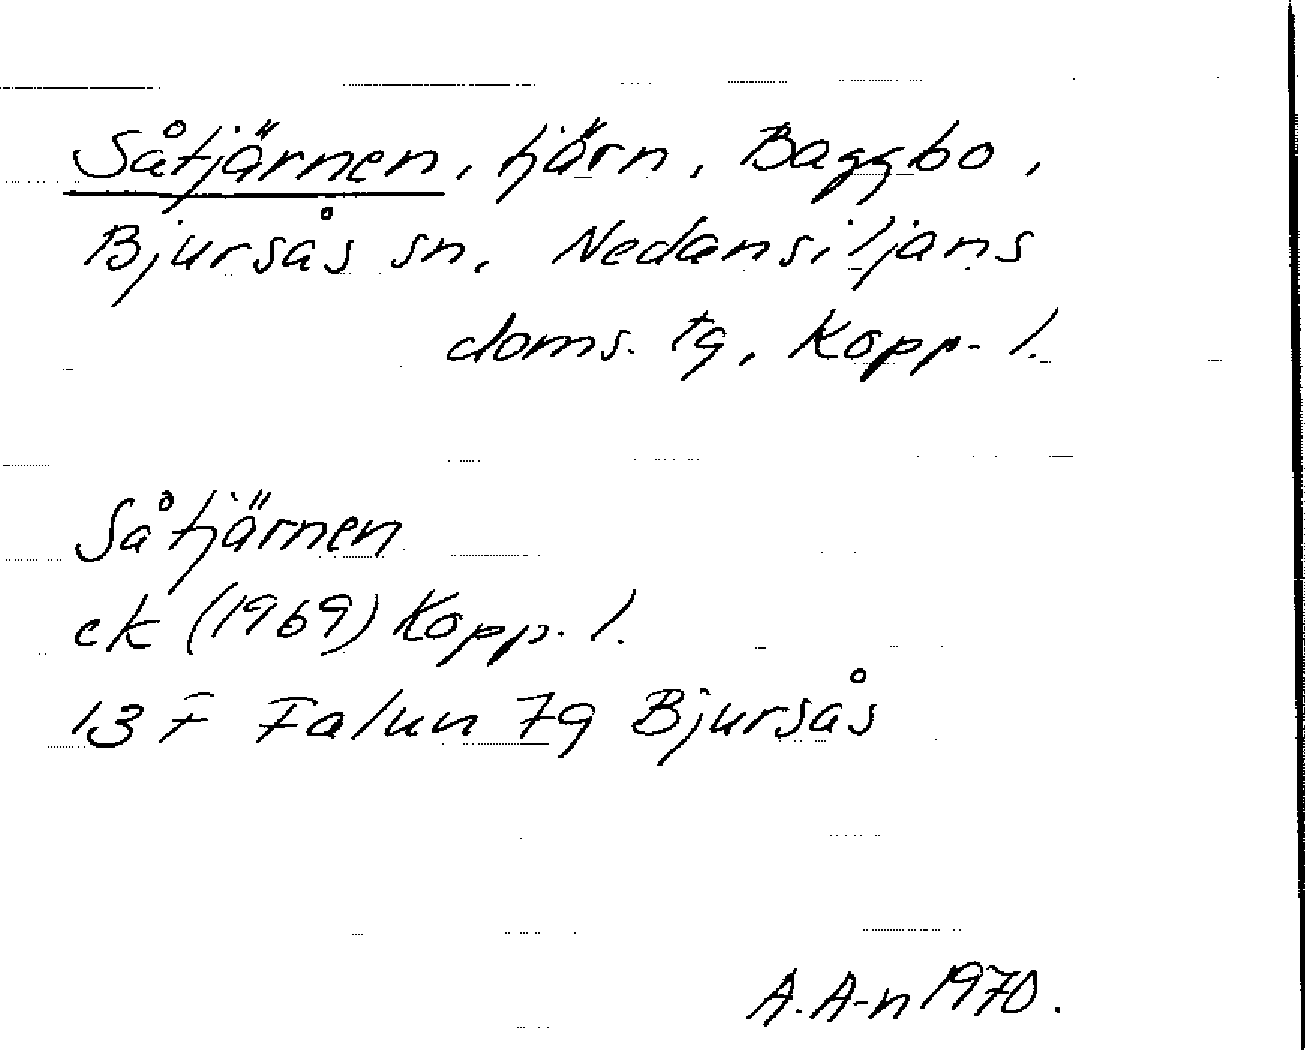 Såtjärnen, tjärn, Baggbo,
Bjursås sn, Nedansiljans
doms. tg, Kopp. l.
Såtjärnen
ek (1969) Kopp. l.
13 F Falun 7g Bjursås
A. A-n 1970.